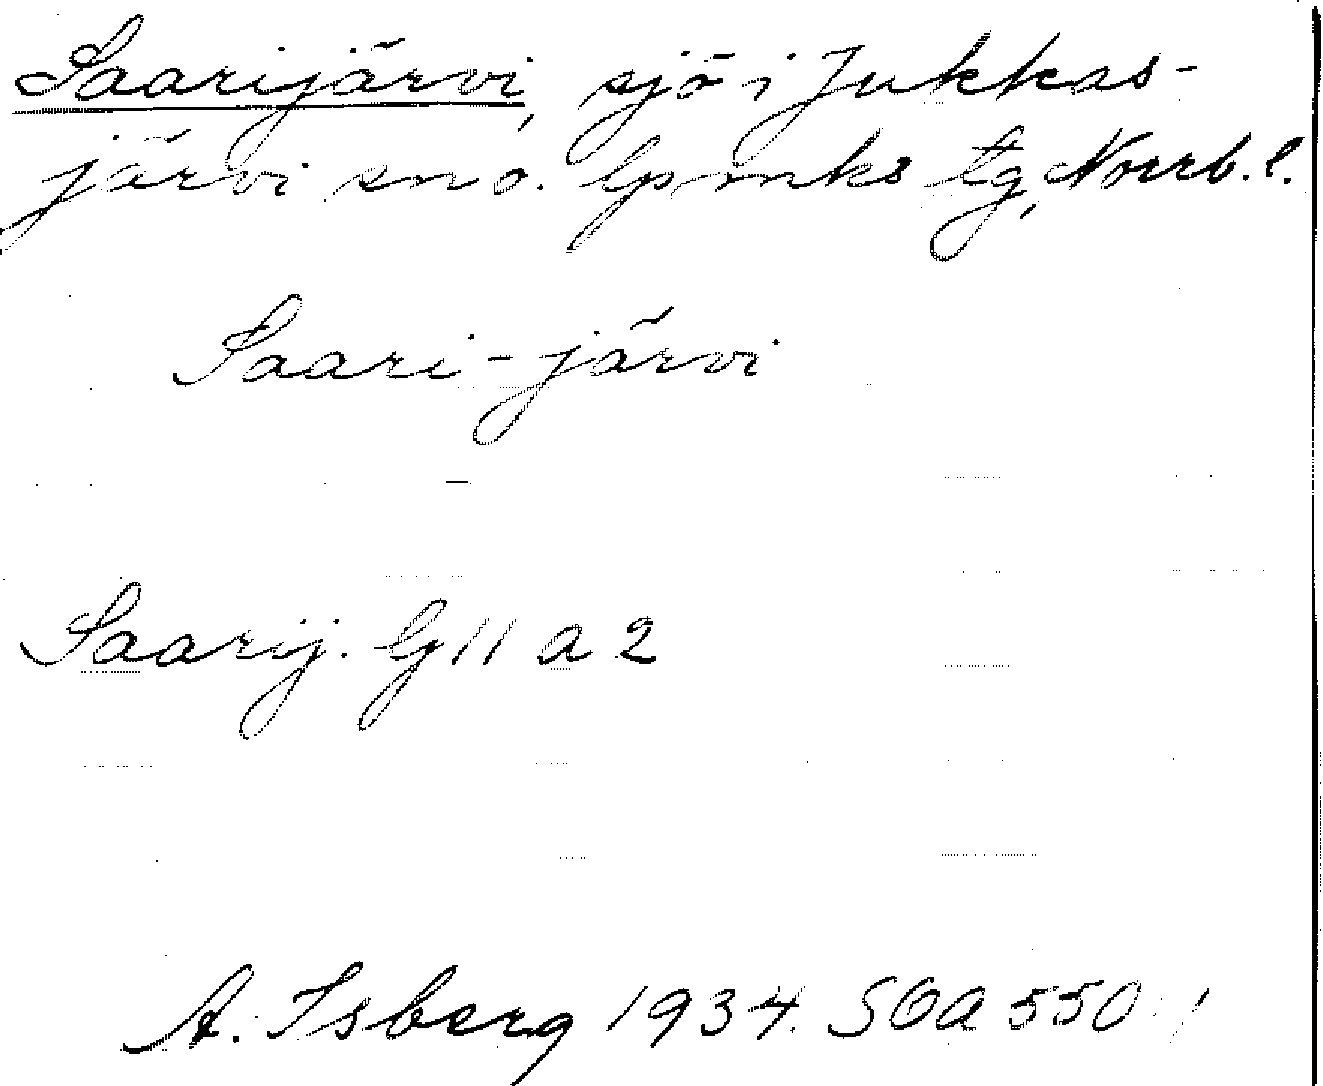 Saarijärvi, sjö i Jukkas-
järvi sn o. lpmks tg, Norrb. l.
Saari-järvi
Saarij. G 11 a 2
A. Isberg 1934. SOA 550